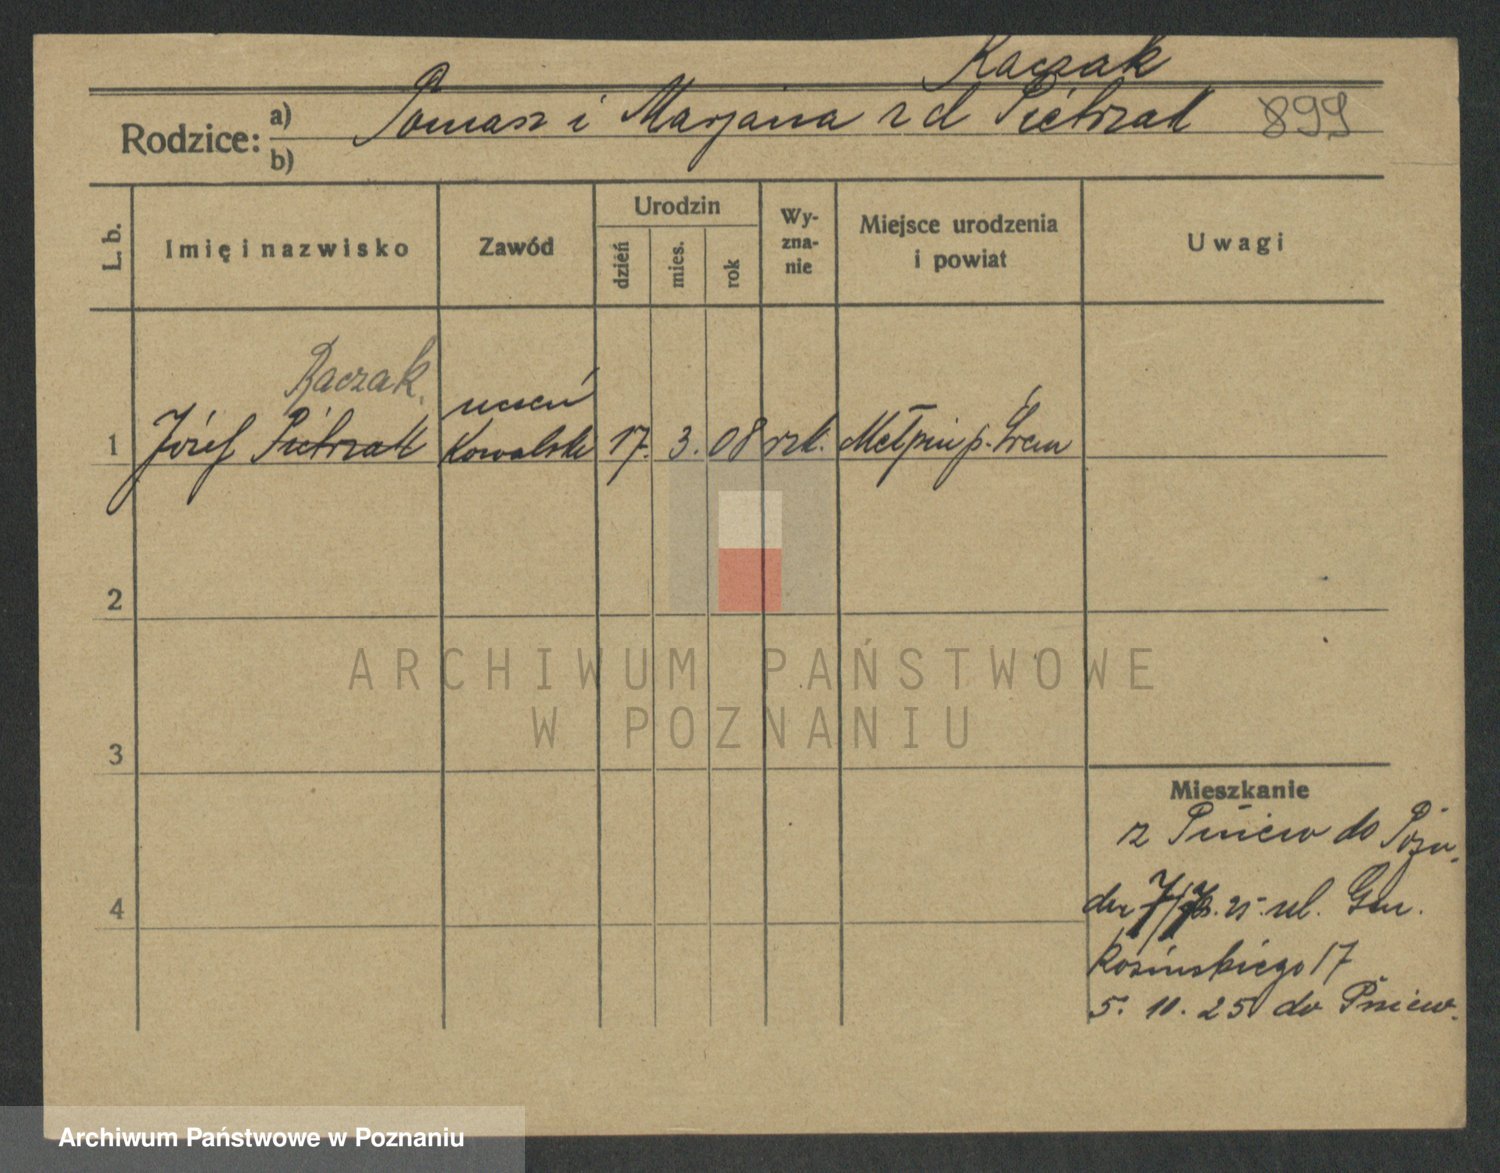 Raczak
Rodzice: a) Tomasz i Marjana z d Pietrzak 899
b)
L. b. Imię i nazwisko Zawód Urodzin dzień mies. rok Wy-zna-nie Miejsce urodzenia i powiat Uwagi
Raczak. uczeń
1 Józef Pietrzak Kowalski 17. 3. 08 rzk. Mełpin p. Śrem
2
ARCHIWUM PAŃSTWOWE
W POZNANIU
3
Mieszkanie
z Pniew do Pozn.
4 25. ul. Gen.
Kosińskiego 17
5. 10. 25 do Pniew.
Archiwum Państwowe w Poznaniu